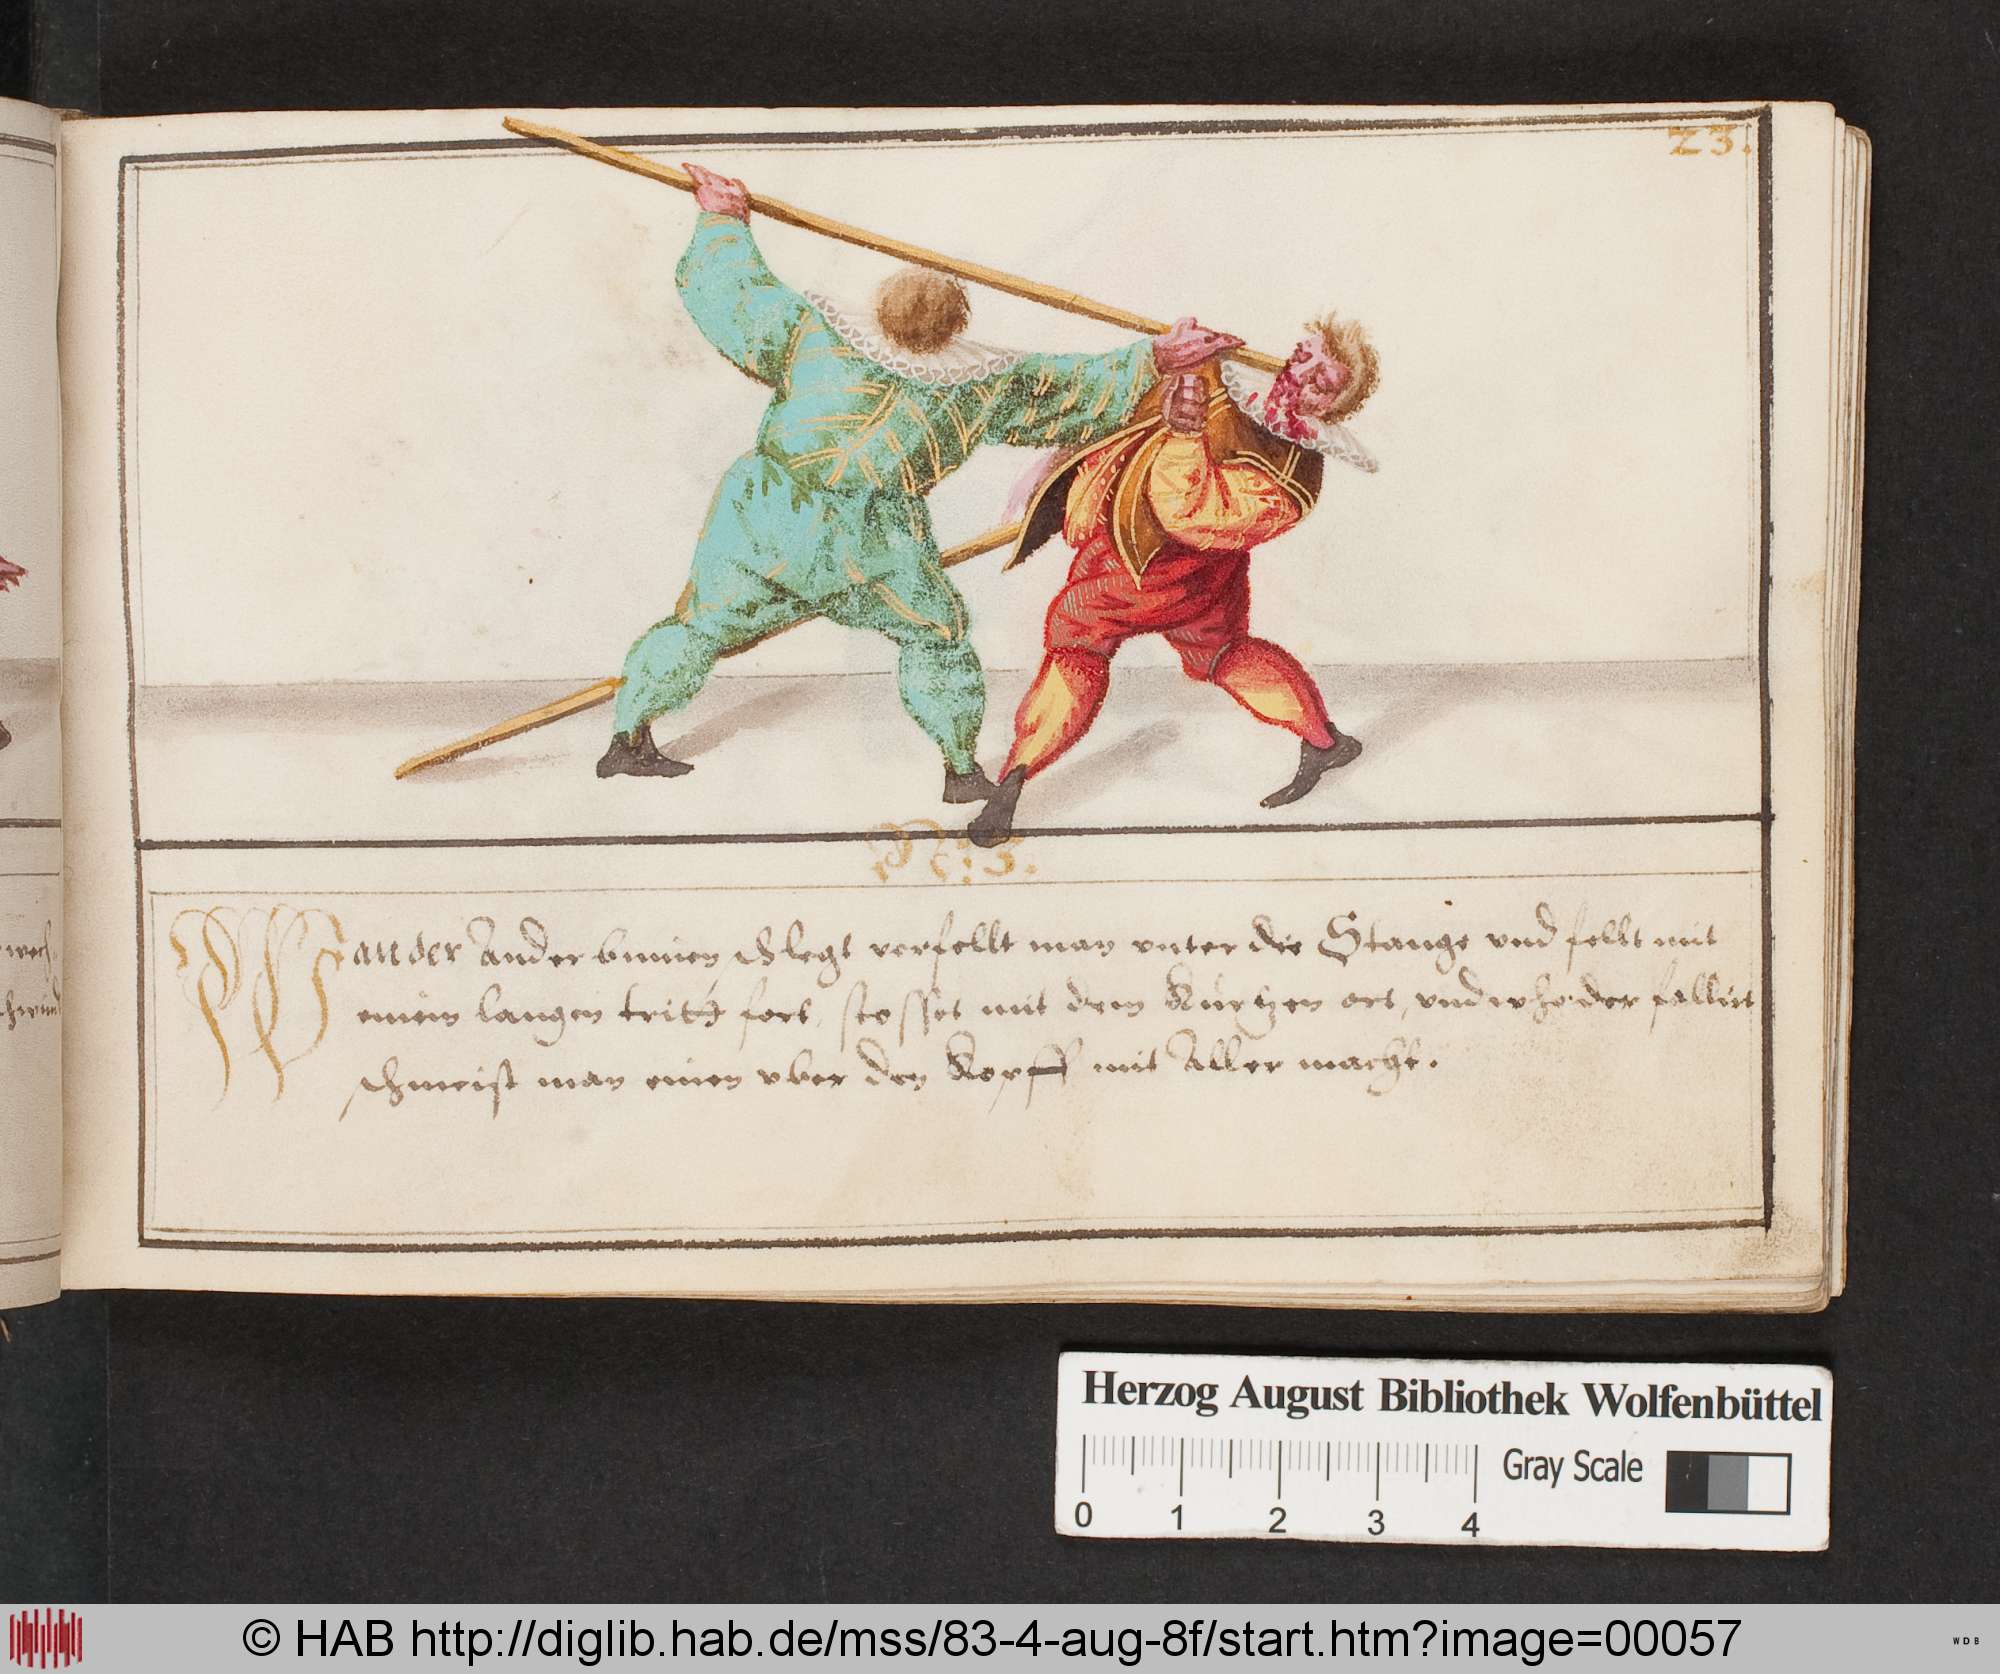 23.
N: 3.
Wan der Ander binnen schlegt verfellt man vnter die Stange vnd fellt mit
einem langen tritt fort, stosset mit dem Kurtzen ort, vnd wo der fallirt
schmeist man einen vber den Kopff mit Aller macht.
Herzog August Bibliothek Wolfenbüttel
Gray Scale
0 1 2 3 4
© HAB http://diglib.hab.de/mss/83-4-aug-8f/start.htm?image=00057
WDB